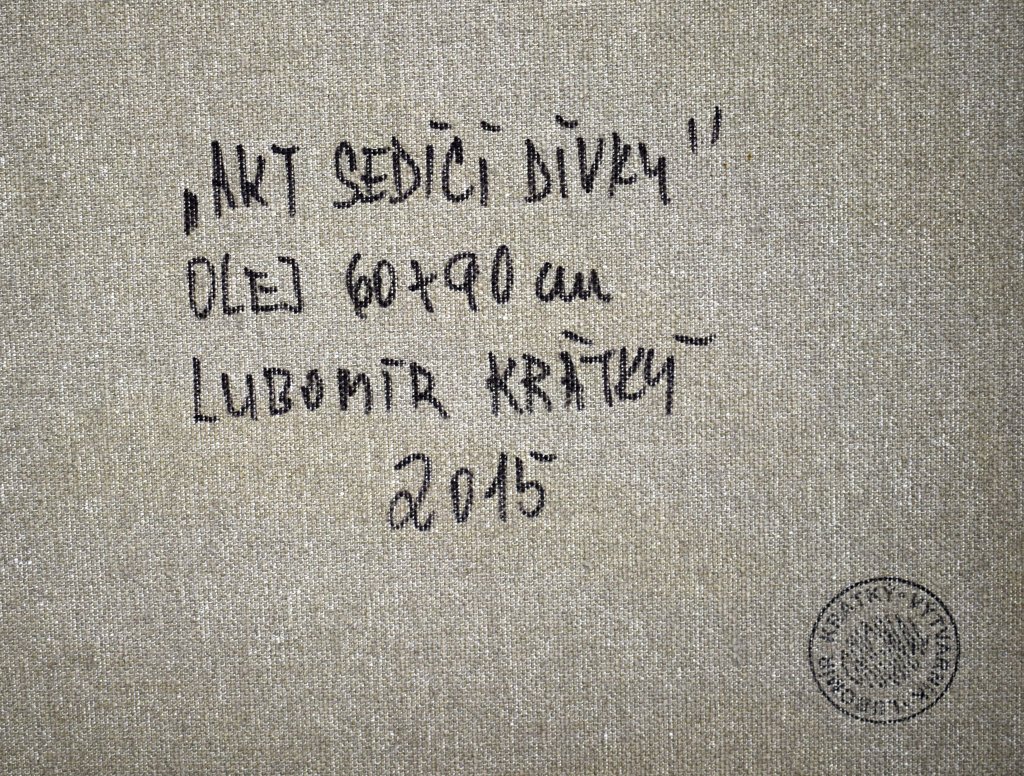 „AKT SEDÍCÍ DÍVKY"
OLEJ 60+90 cm
LUBOMÍR KRÁTKÝ
2015
LUBOMÍR KRÁTKÝ - VÝTVARNÍK -